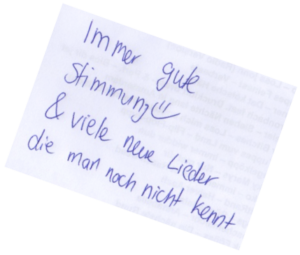 Immer gute
Stimmung
& viele neue Lieder
die man noch nicht kennt